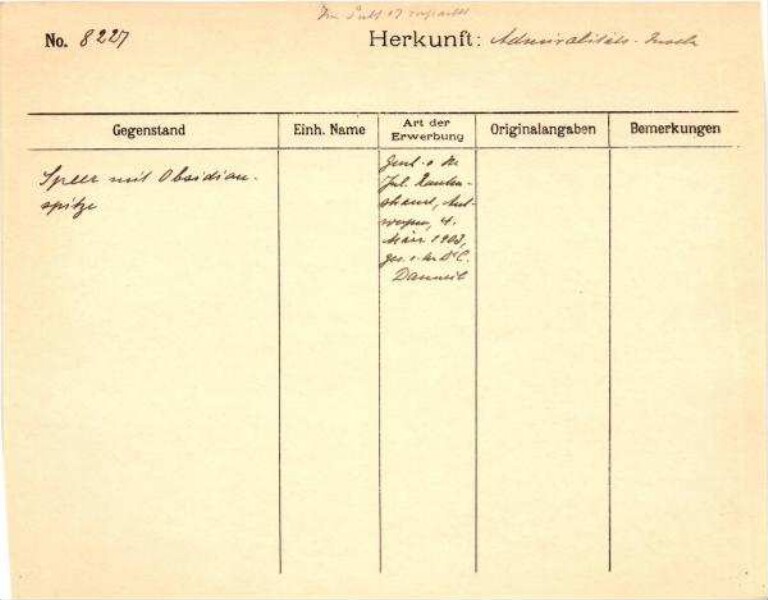 No. 8227
Herkunft: Admiralitäts-Inseln
Gegenstand
Einh. Name
Art der
Erwerbung
Originalangaben
Bemerkungen
Speer mit Obsidian-
spitze
Jul.
werpen, 4.
März 1903,
ges. v. Dr. C.
Danneil